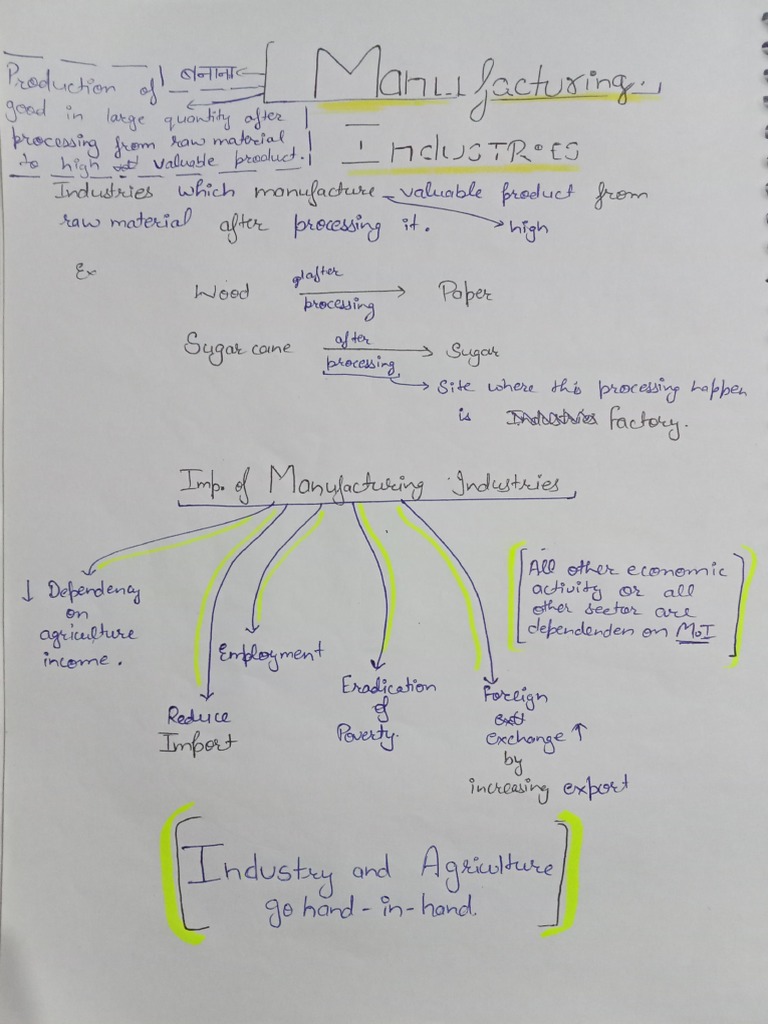 Manufacturing
Industries
बनाना
Production of
good in large quantity after
processing from raw material
to high valuable product.
Industries which manufacture valuable product from
high
raw material after processing it.
Ex
Wood after processing → Paper
Sugarcane after processing → Sugar
Site where this processing happen
is Industries factory.
Imp. of Manufacturing Industries
↓ Dependency
on
agriculture
income.
Reduce
Import
Employment
Eradication
of
Poverty.
Foreign
exchange ↑
by
increasing export
All other economic
activity or all
other sector are
dependenden on MoI
Industry and Agriculture
go hand-in-hand.